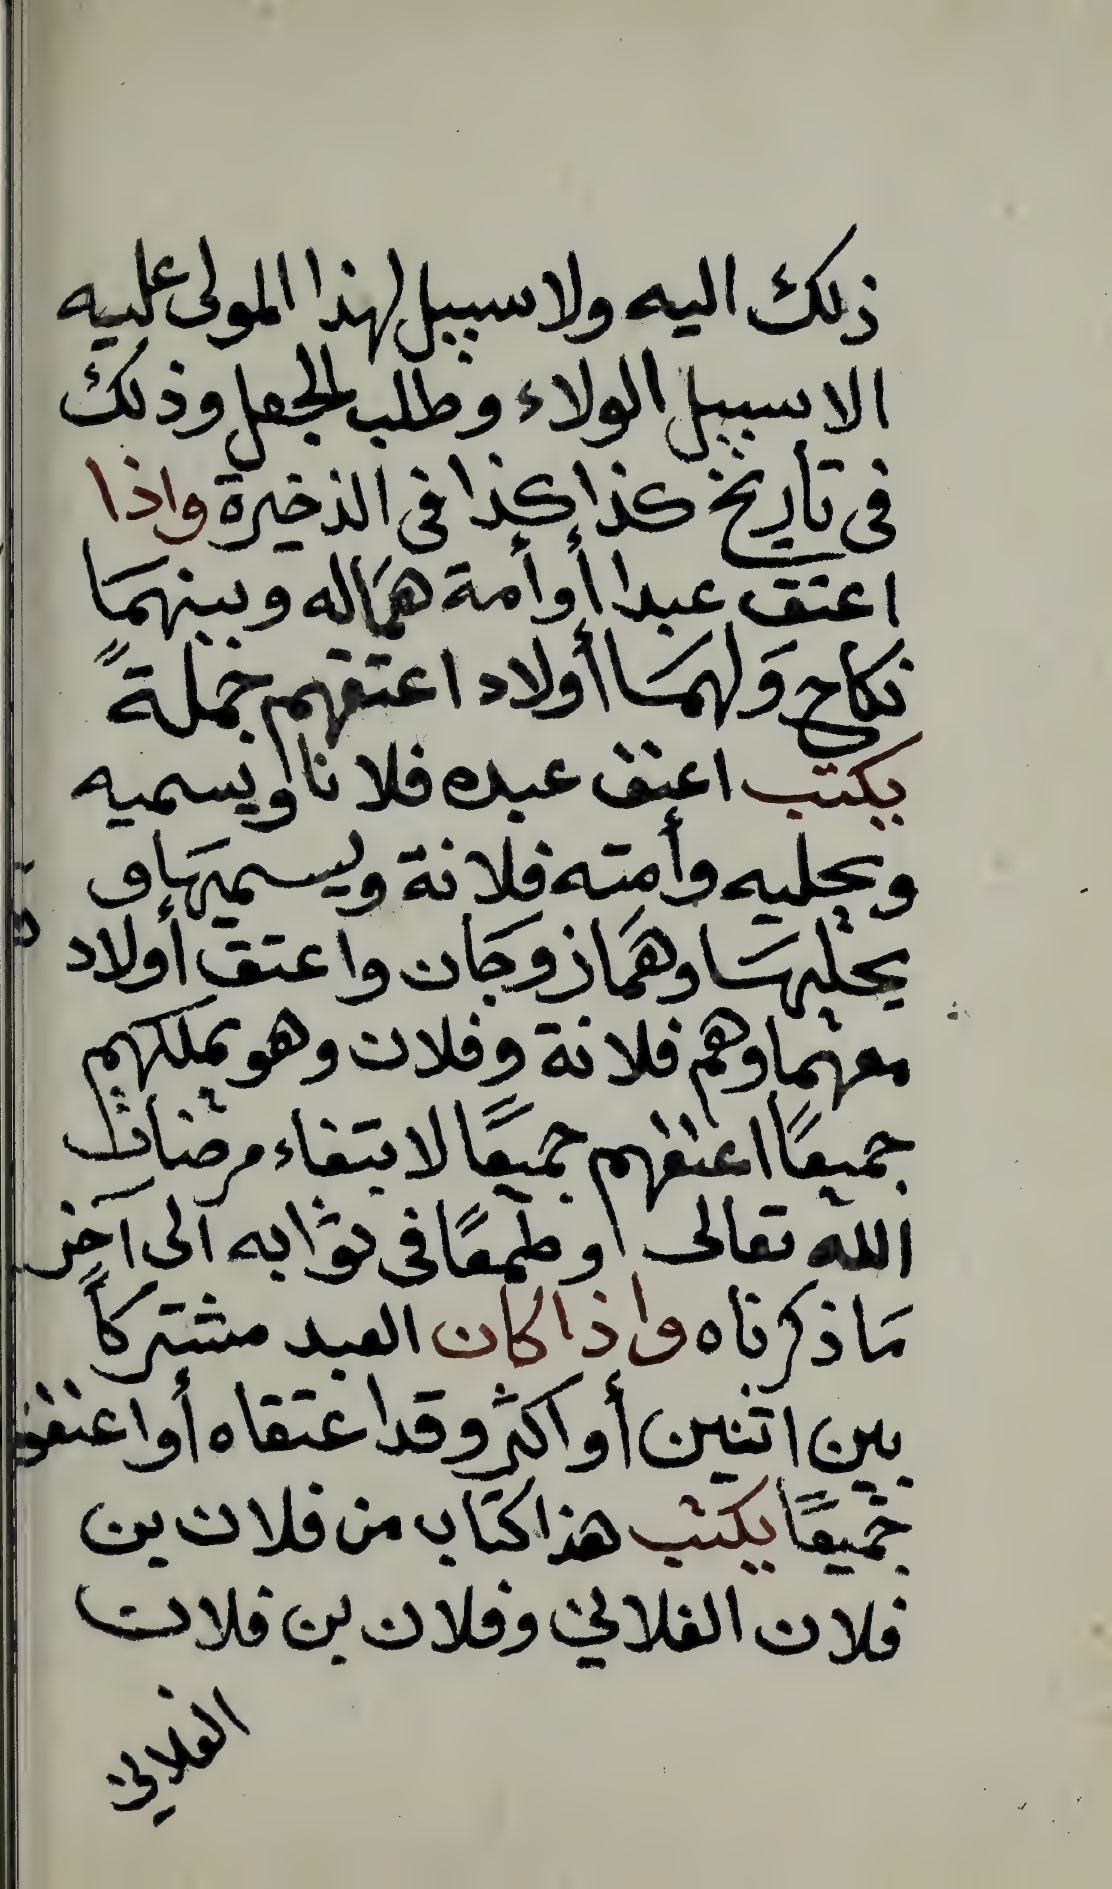 ذلك اليه ولا سبيل لهذا المولى عليه
الا سبيل الولاء وطلب الجعل وذلك
فى تأريخ كذا كذا فى الذخيرة واذا
اعتق عبدا أو أمة هما له وبينهما
نكاح ولهما أولاد اعتقهم جملةً
يكتب اعتق عبده فلانا ويسميه
ويحليه وأمته فلانة ويسميها و
يحليها وهما زوجان واعتق أولاد
معهما وهم فلانة وفلان وهو يملكهم
جميعًا اعتقهم جميعًا لابتغاء مرضات
الله تعالى وطمعًا فى ثوابه الى آخر
ما ذكرناه واذا كان العبد مشتركاً
بين اثنين أو اكثر وقد اعتقاه أو اعتقو
جميعًا يكتب هذا كتاب من فلان بن
فلان الفلاني وفلان بن فلان
الفلاني